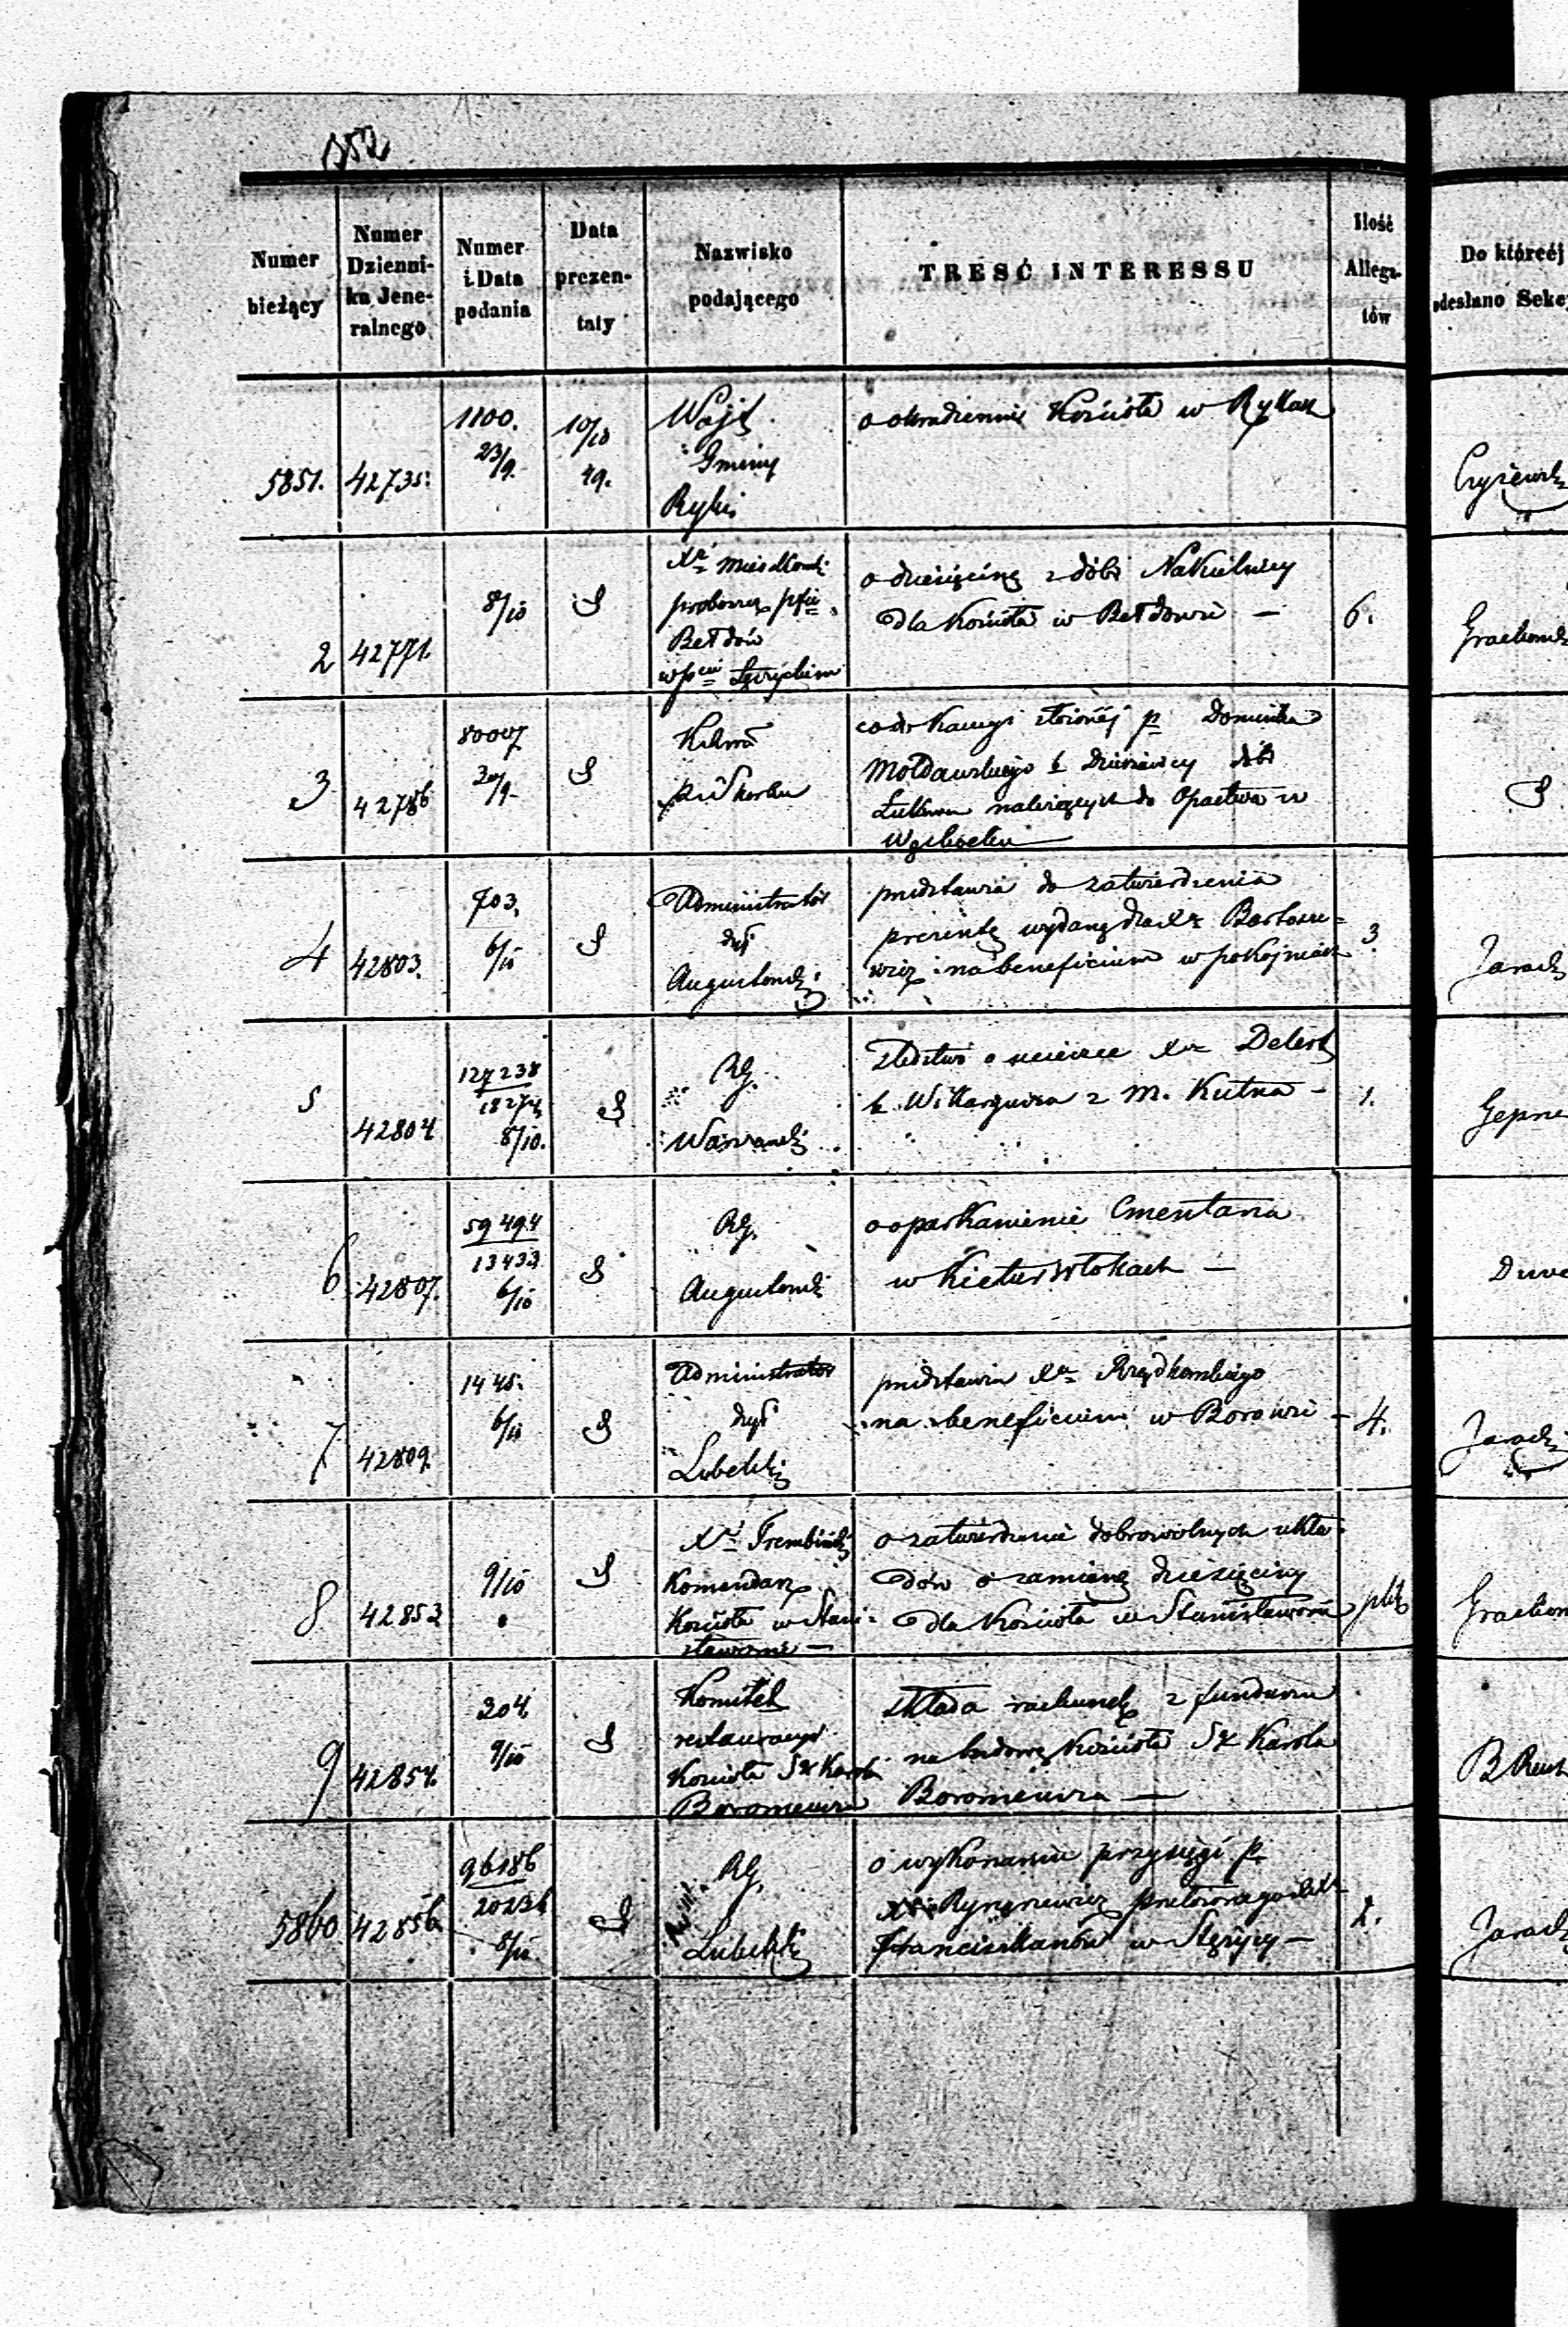 352
Numer bieżący
Numer Dzienni-ka Jene-ralnego
Numer i Data podania
Data prezen-taty
Nazwisko podającego
TREŚĆ INTERESSU
Ilość Allega-tów
Do któréj
odesłano Sekc
5851. 42735. 1100. 23/9. 10/10 49.
Wójt
Gminy
Ryki
o okradzenie Kościoła w Rykach
2 42771 8/10
proboszcz pfii
Bełdów
w pcie Łęczyckim
o dziesięcinę z dóbr Nakielnicy
dla Kościoła w Bełdowie —
6.
3 42786 80007 20/9
co do Kaucyi złożonéj p Dominika
Mołdawskiego b Dzierżawcy dóbr
należących do Opactwa w
Wąchocku —
4 42803. 703. 6/10
Administrator
dyj
Augustowski
przedstawia do zatwierdzenia
prezentę wydaną dla Xa Bartosze-
wicz na beneficium w pokojniach
3.
Jarack
5 42804 127238 18274 8/10.
RG.
Warszawski
Śledztwo o ucieczce Xa Delert
b. Wikaryusza z M. Kutna —
1.
Gepne
6 42807. 59494 13433 6/10
RG.
Augustowski
o oparkanienie Cmentarza
w Kieturwłokach —
7 42809. 1445. 6/10
Administrator
dyj
Lubelski
przedstawia Xa Rządkowskiego
na beneficium w Borowie —
4.
Jarack
8 42853 9/10
Xdz Trembiński
Komendarz
Kościoła w Stani-
sławowie —
o zatwierdzenie dobrowolnych ukła-
dów o zamianę dziesięciny
dla Kościoła w Stanisławowie
plik
9 42854. 304. 9/10
Komitet
restauracyi
Kościoła Sgo Karola
Boromeusza
składa rachunek z funduszu
na budowę Kościoła Sgo Karola
Boromeusza —
5860 42856 96186 20236 8/10
RG.
Lubelski
o wykonaniu przysięgi p
Xa Ryngiewicz przełożonego
Franciszkanów w Stężycy —
2.
Jarack